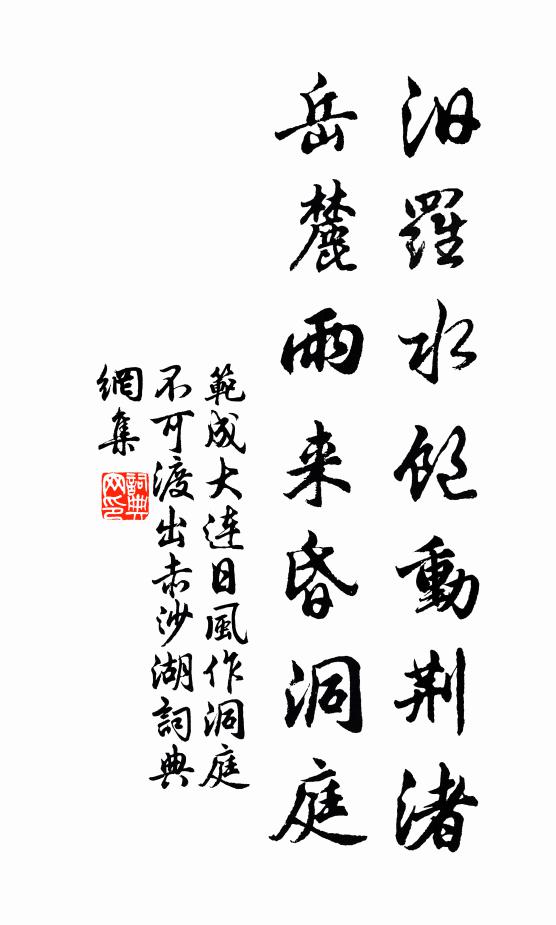 汨羅水飽動荆渚
岳麓雨来昏洞庭
範成大連日風作洞庭
不可渡出赤沙湖詞典
網集
詞典
网印